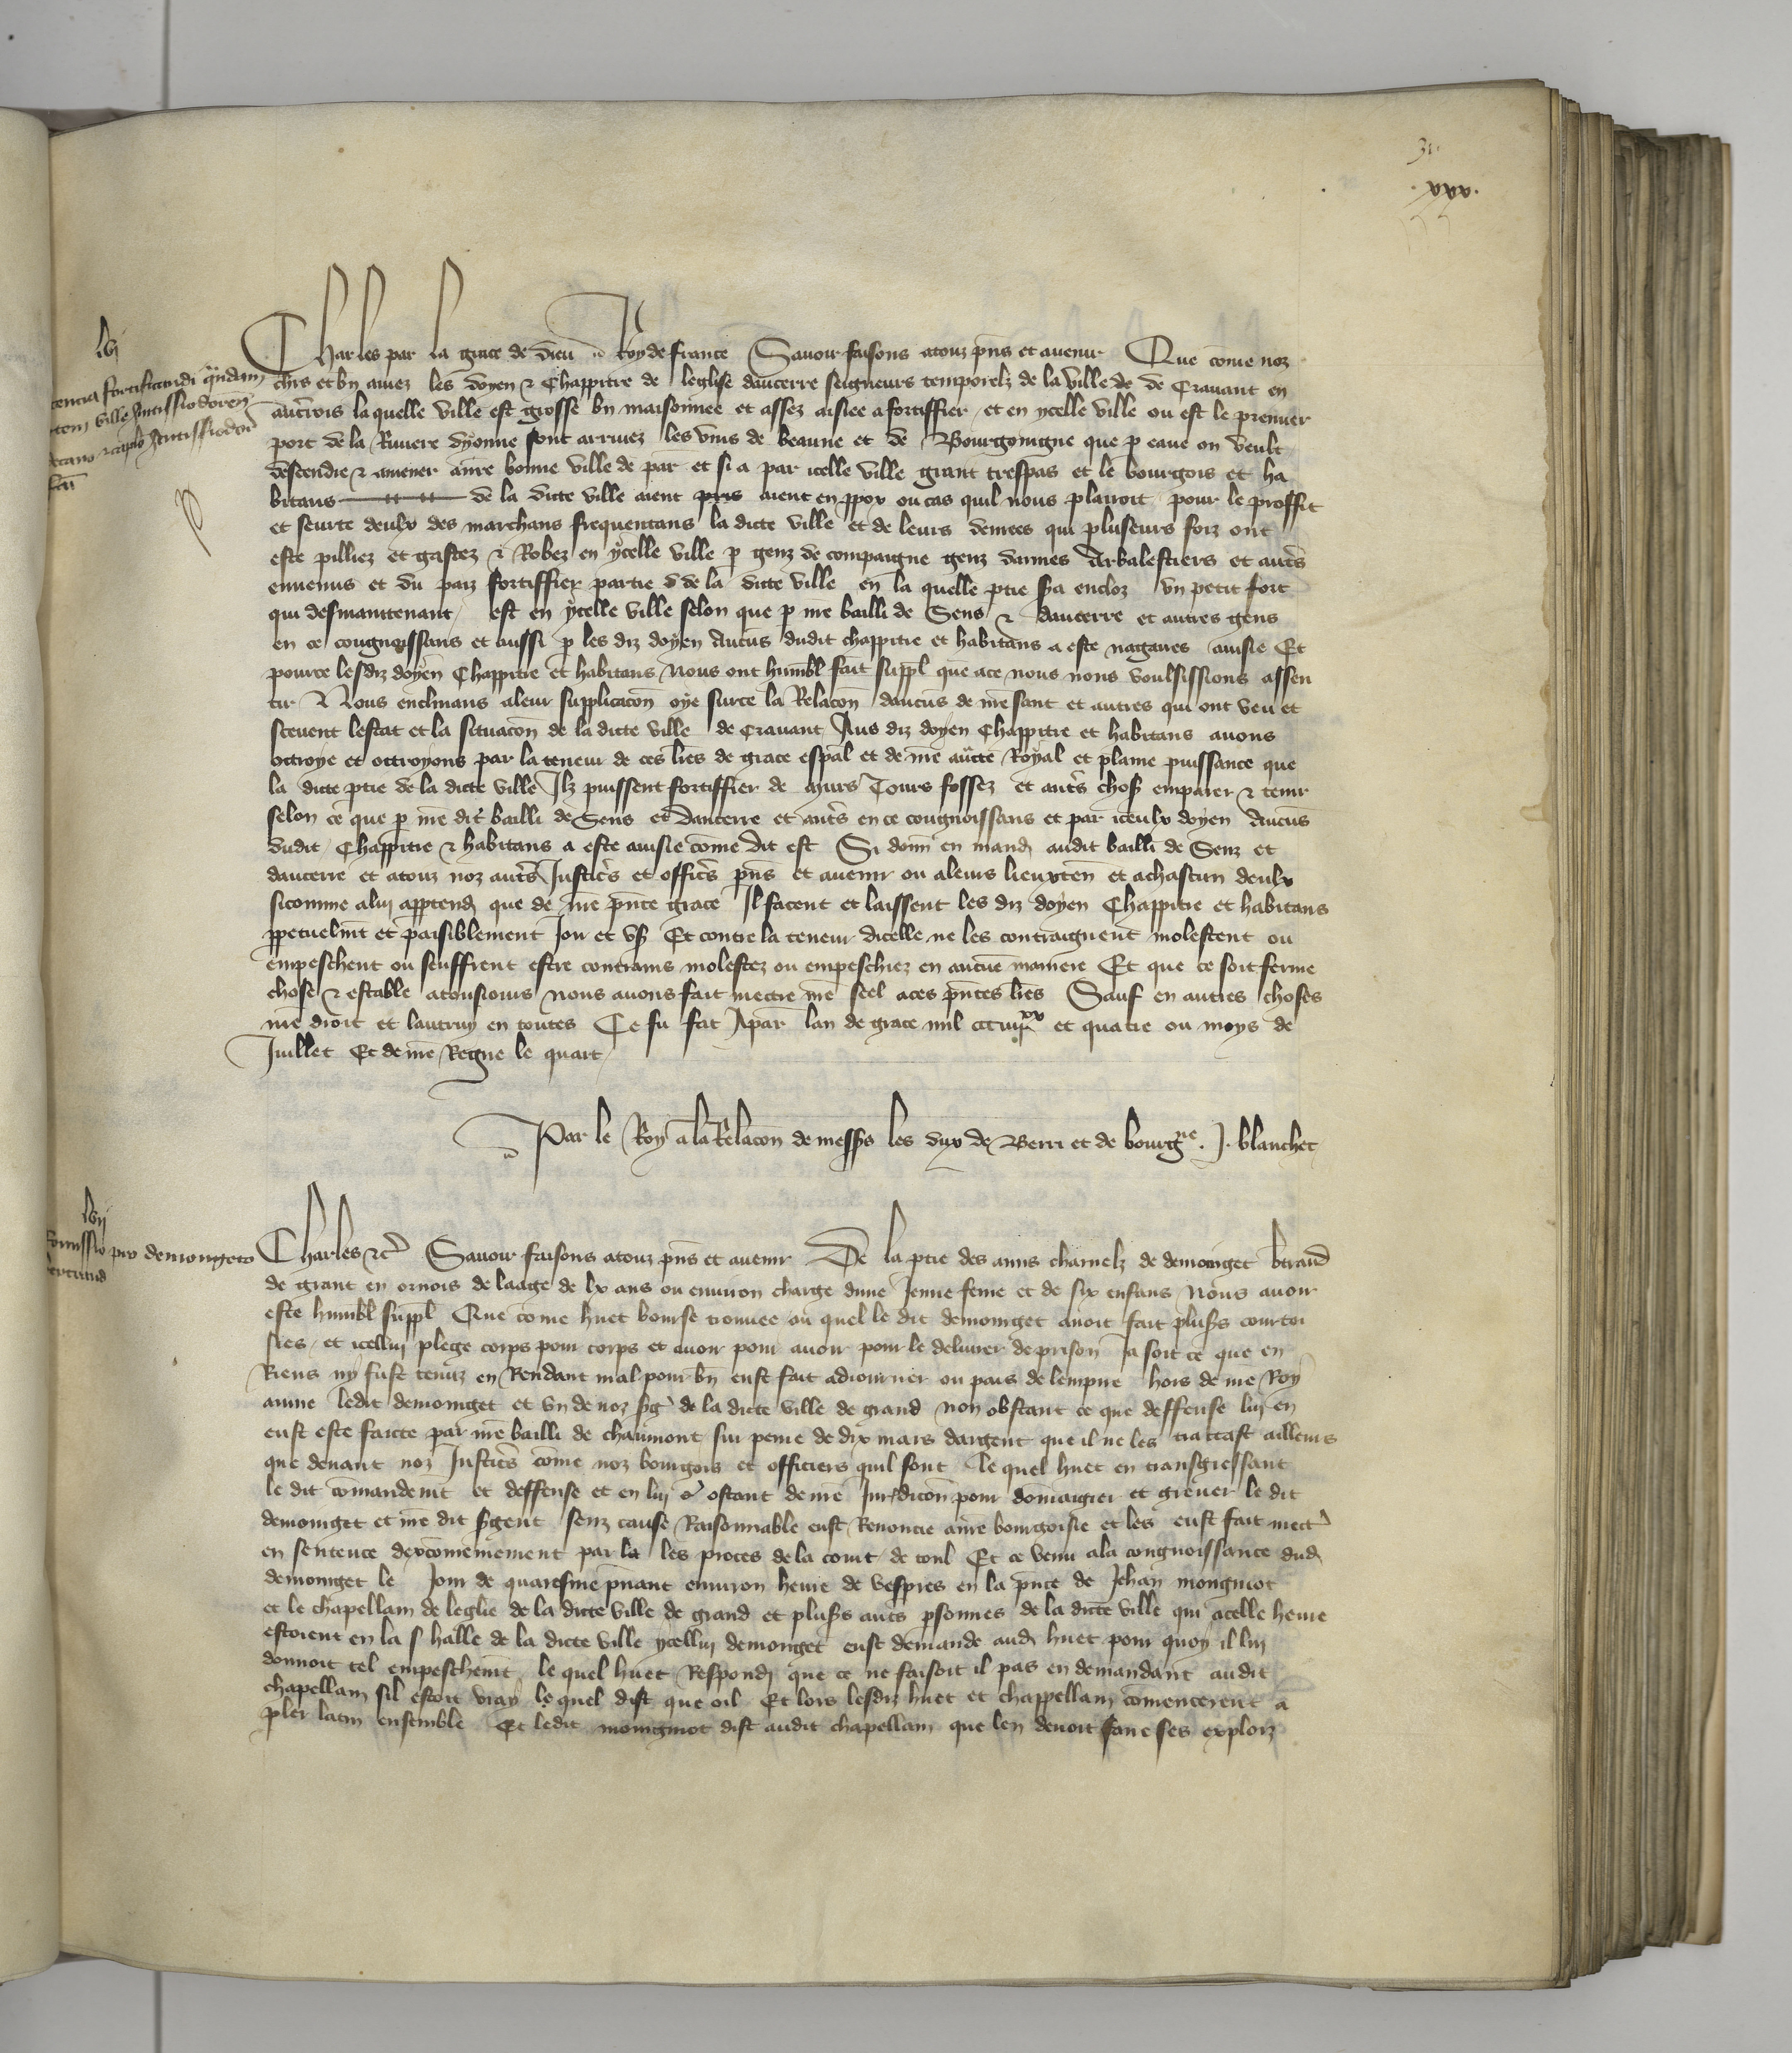 .xxx.
lvj
Charles par la grace de dieu Roy de france Savoir faisons atouz pns et avenir Que come noz
chrs et bn amez les doyen & Chappitre de leglise daucerre seigneurs temporelz de la ville de de Cravant en
aucrois la quelle ville est grosse bn maisonnee et assez aisiee a fortiffier et en ycelle ville ou est le premier
port de la Riviere dyonne sont arrivez les vins de beaune et de Bourgoingne que p eaue on veult
descendre & amener anre bonne ville de par et si a par icelle ville grant trespas et le bourgois et ha
bitans de la dicte ville aient pris aient en ppox ou cas quil nous plairoit pour le proffit
et seurte deulx des marchans frequentans la dicte ville et de leurs denrees qui pluseurs foiz ont
este pilliez et gastez & Robez en ycelle ville p genz de compaigne genz darmes Arbalestiers et autrs
ennemis et du paiz fortiffier partie d de la dicte ville en la quelle ptie sa encloz un petit fort
qui desmaintenant est en ycelle ville selon que p nre bailli de Sens & daucerre et autres gens
en ce congnoissans et aussi p les diz doyen Aucuns dudit chappitre et habitans a este nagaires avisie Et
pource lesdiz doyen Chappitre et habitans Nous ont humbl fait suppl que ace nous nons voulsissions assen
tir & Nous enclinans aleur supplicacon oye surce la Relacon daucuns de nre sant et autres qui ont veu et
scevent lestat et la situacon de la dicte ville de Cravant Aus diz doyen Chappitre et habitans avons
octroye et octroyons par la teneur de ces lres de grace espal et de nre aucte Royal et plaine puissance que
la dicte ptie de la dicte ville Ilz puissent fortiffier de murs Tours fossez et autrs chos emparer & tenir
selon ce que p nre dit bailli de Sens et daucerre et autrs en ce congnoissans et par iceulx doyen Aucuns
dudit Chappitre & habitans a este avisie come dit est Si donn en mand audit bailli de Senz et
daucerre et atouz noz autrs Justicrs et officrs pns et avenir ou aleurs lieuxten et achascun deulx
sicomme alui apptend que de nre pnte grace Il facent et laissent les diz doyen Chappitre et habitans
ppetuelmt et paisiblement Joir et us Et contre la teneur dicelle ne les contraignent molestent ou
empeschent ou seuffrent estre contrains molestez ou empeschiez en aucune maniere Et que ce soit ferme
chose & estable atousiours Nous avons fait mectre nre seel aces pntes lres Sauf en autres choses
nre droit et lautruy en toutes Ce fu fait Apar lan de grace mil ccciiijxx et quatre ou moys de
Juillet Et de nre Regne le quart
Par le Roy a la Relacon de messrs les dux de Berri et de bourgne. J. blanchet
lvij
Remissio pro demongeto
Charles &c Savoir faisons atouz pns et avenir De la ptie des amis charnelz de demonget btrand
de grant en ornois de laage de lx ans ou environ charge dune Jeune feme et de six enfans Nous avoir
este humbl suppl Que come huet bourse trouvee ou quel le dit demonget avoit fait plusrs courtoi
sies et icellui plege corps pour corps et avoir pour avoir pour le delivrer de prison Ja soit ce que en
Riens ny fust tenuz en Rendant mal pour bn eust fait adiourner ou pais de lempire hors de nre Roy
aume ledit demonget et un de noz sg de la dicte ville de grand non obstant ce que deffense lui en
eust este faicte par nre bailli de chaumont sur peine de dix mars dargent que il ne les traittast ailleurs
que devant noz Justicrs come noz bourgois et officiers quil sont le quel huet en transgressant
le dit comandemt et deffense et en lui ostant de nre Juridicon pour domaigier et grever le dit
demonget et nre dit sgent senz cause Raisonnable eust Renoncie anre bourgoisie et les eust fait mectr
en sentence dexcomeniement par la les proces de la court de toul Et ce venu ala congnoissance dud
demonget le Jour de quaresme pnant environ heure de vespres en la pnce de Jehan mongniot
et le chapellain de leglie de la dicte ville de grand et plusrs autrs psonnes de la dicte ville qui acelle heure
estoient en la s halle de la dicte ville ycellui demonget eust demande aud huet pour quoy il lui
donnoit tel empeschemt le quel huet Respond que ce ne faisoit il pas en demandant audit
chapellain sil estoit vray le quel dist que oil Et lors lesdiz huet et chappellain comencerent a
pler latin ensemble Et ledit mongniot dist audit chapellain que len devoit faire ses exploiz